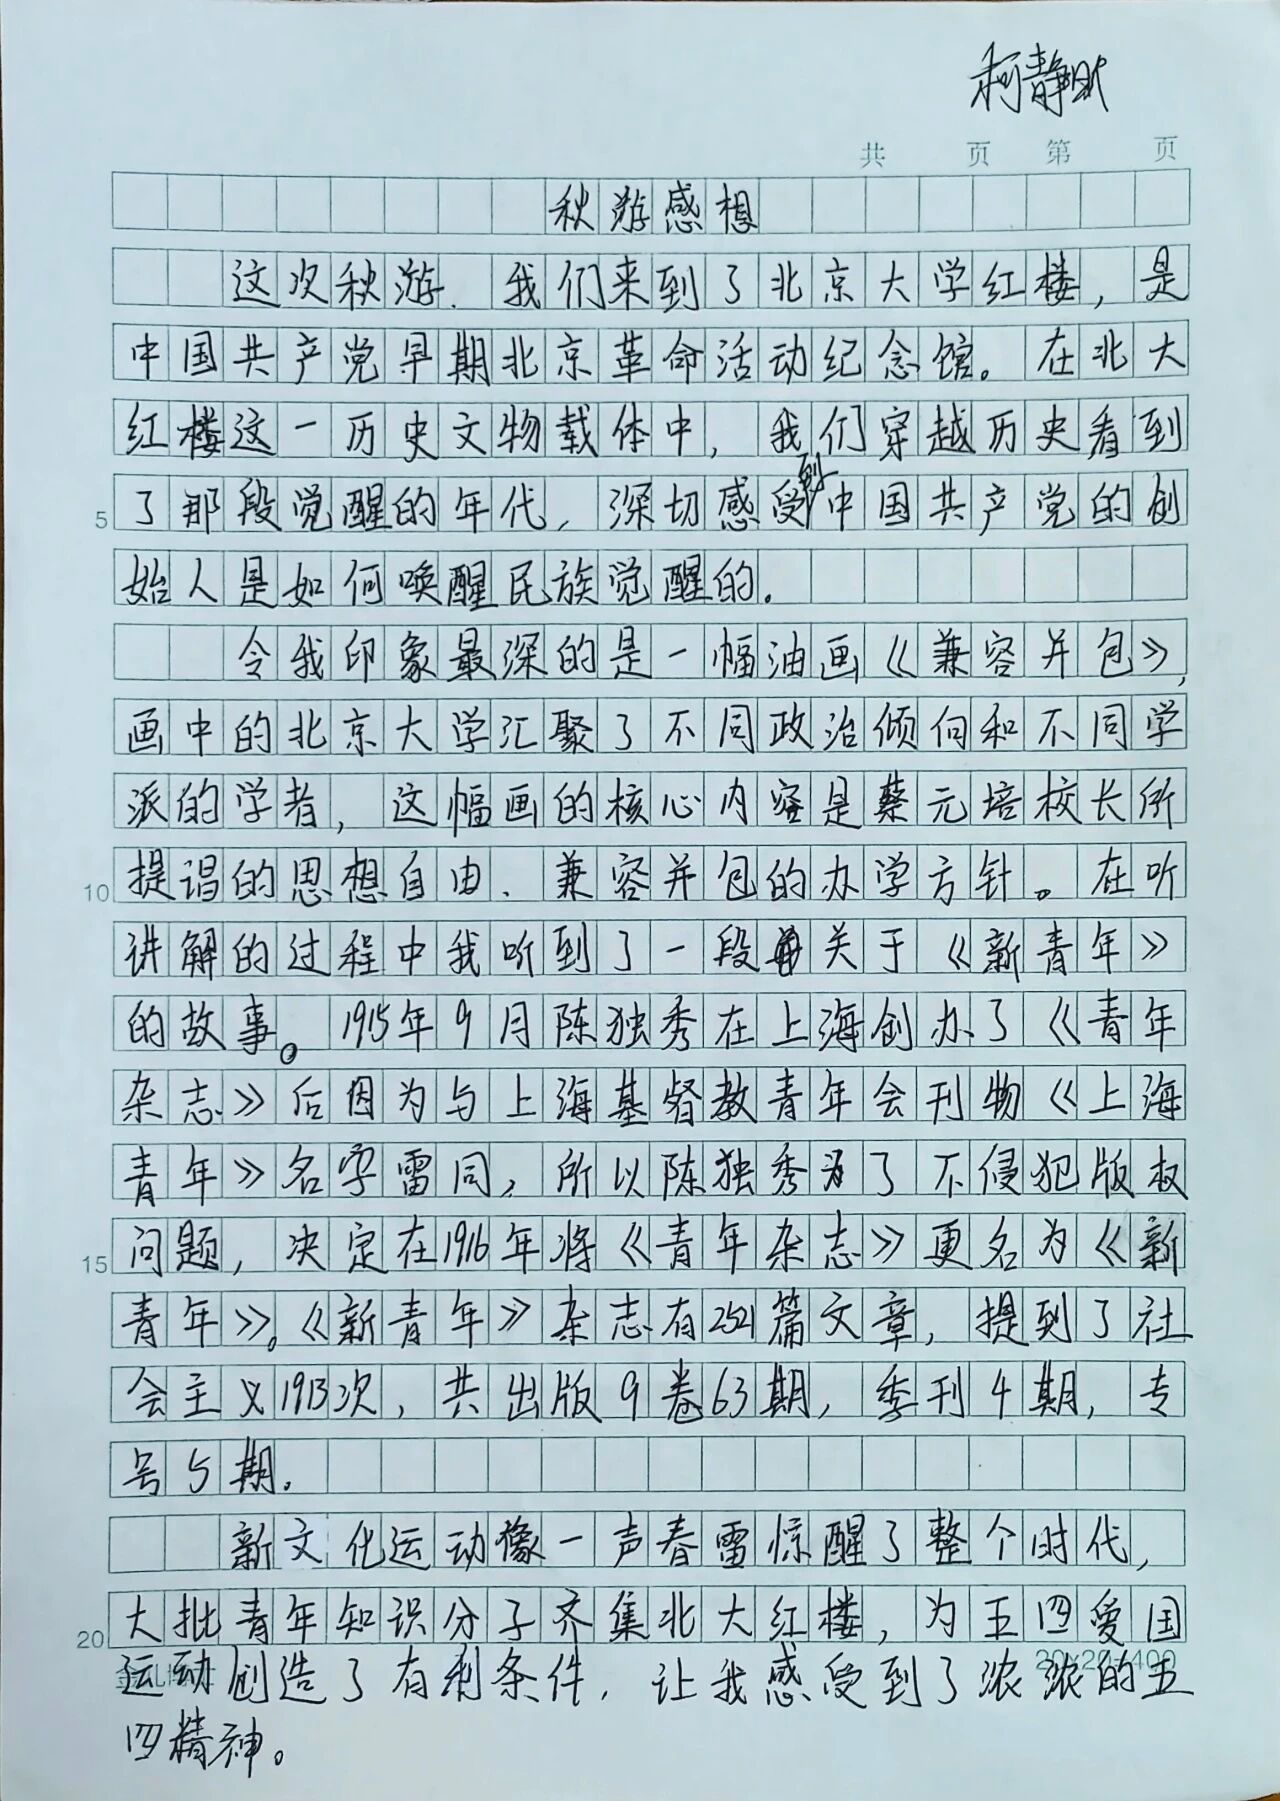 柯静
共 页 第 页
秋游感想
这次秋游、我们来到了北京大学红楼，是
中国共产党早期北京革命活动纪念馆。在北大
红楼这一历史文物载体中，我们穿越历史看到
5 了那段觉醒的年代，深切感受到中国共产党的创
始人是如何唤醒民族觉醒的.
令我印象最深的是一幅油画《兼容并包》,
画中的北京大学汇聚了不同政治倾向和不同学
派的学者，这幅画的核心内容是蔡元培校长所
10 提谒的思想自由、兼容并包的办学方针。在听
讲解的过程中我听到了一段关于《新青年》
的故事。1915年9月陈独秀在上海创办了《青年
杂志》后因为与上海基督教青年会刊物《上海
青年》名字雷同，所以陈独秀为了不侵犯版权
15 问题，决定在1916年将《青年杂志》更名为《新
青年》。《新青年》杂志有2521篇文章，提到了社
会主义1913次，共出版9卷63期，季刊4期，专
号5期.
新文化运动像一声春雷惊醒了整个时代，
20 大批青年知识分子齐集北大红楼，为五四爱国
20×20=400
运动创造了有利条件，让我感受到了浓浓的五
四精神。